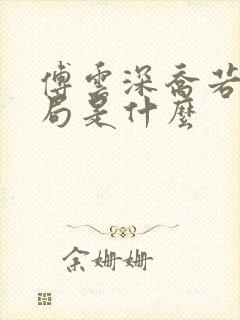 傅雲深喬若
局是什麼
余姍姍